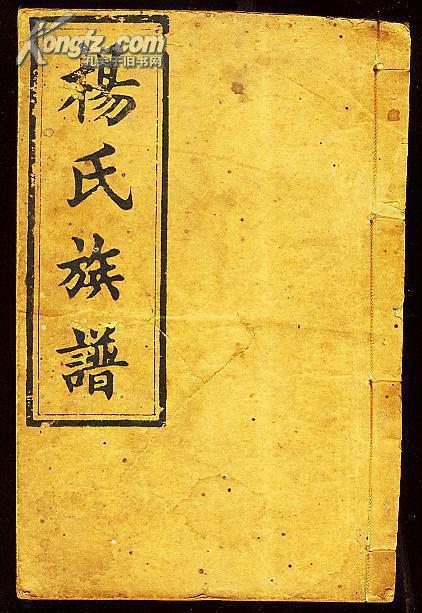 Kongfz.com
孔夫子旧书网
楊氏族譜